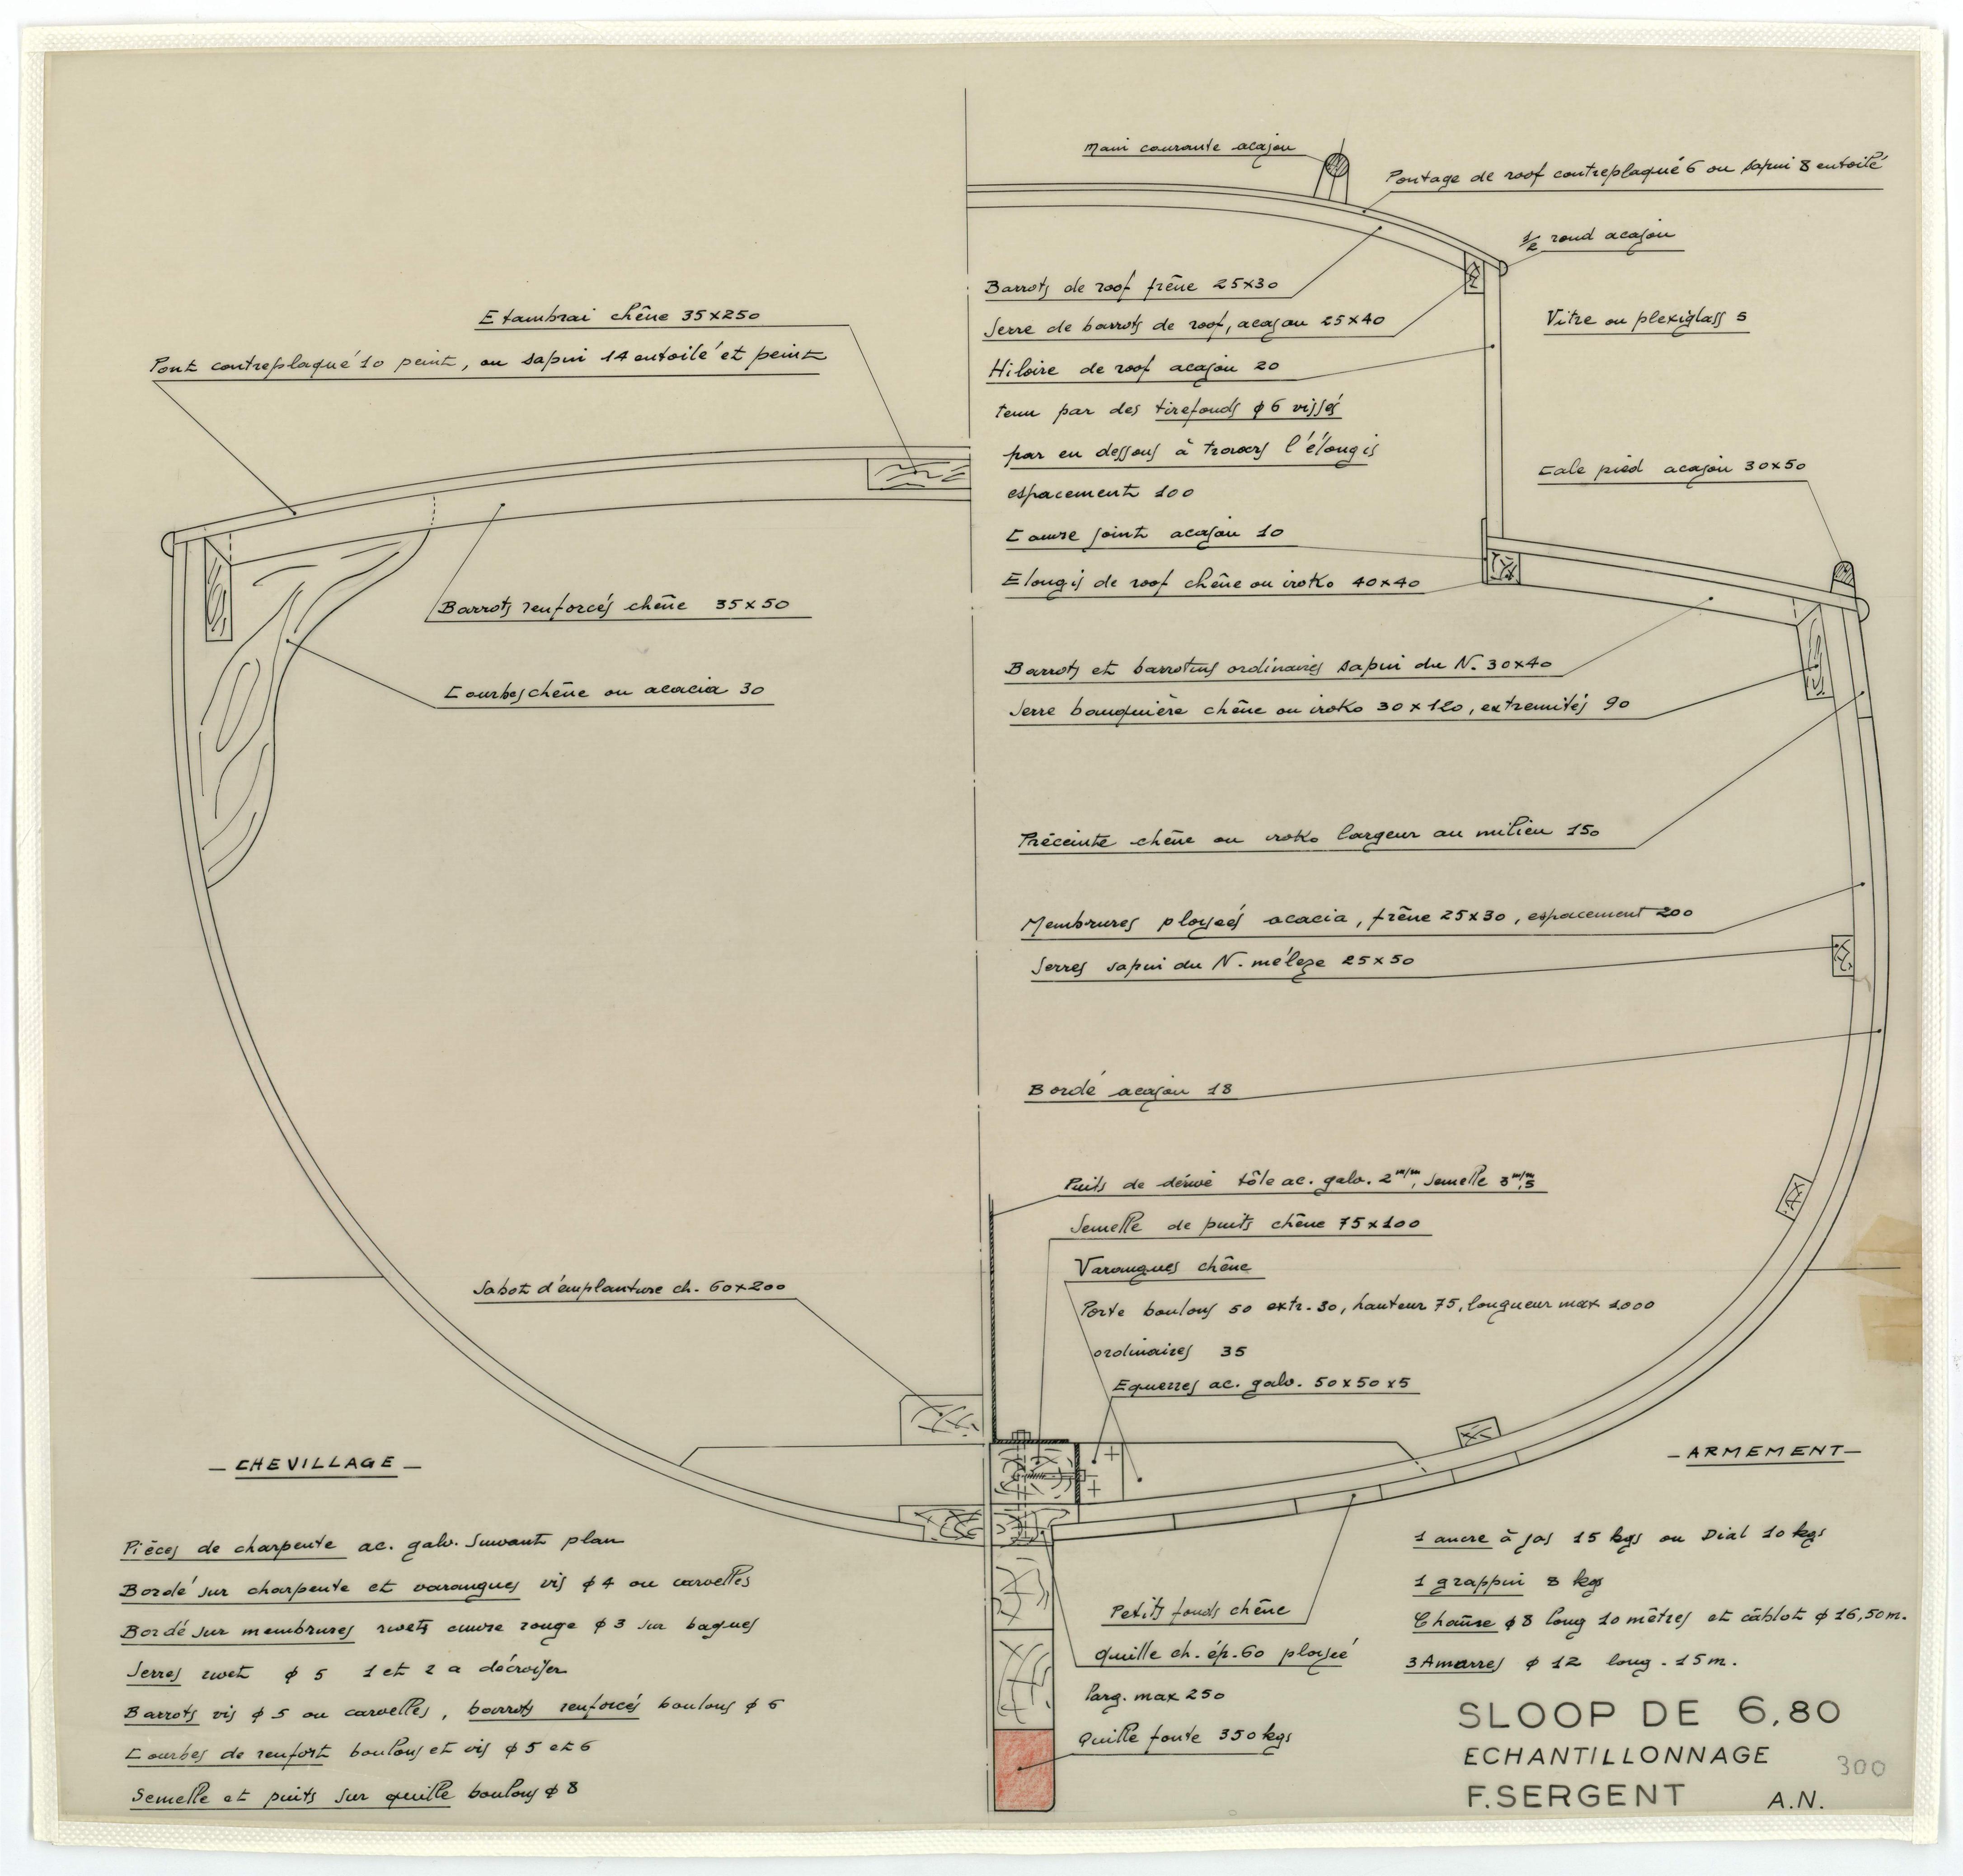 Main courante acajou
Pontage de roof contreplaqué 6 ou sapin 8 entoilé
1/2 rond acajou
Barrots de roof frêne 25x30
Serre de barrots de roof, acajou 25x40
Vitre ou plexiglass 5
Hiloire de roof acajou 20
tenu par des tirefonds φ6 vissés
par en dessous à travers l'élongis
espacement 100
Cale pied acajou 30x50
Couvre joint acajou 10
Elongis de roof chêne ou iroko 40x40
Etambrai chêne 35x250
Pont contreplaqué 10 peint, ou sapin 14 entoilé et peint
Barrots renforcés chêne 35x50
Courbes chêne ou acacia 30
Barrots et barrotins ordinaires sapin du N. 30x40
Serre bauquière chêne ou iroko 30x120, extremités 90
Préceinte chêne ou iroko largeur au milieu 150
Membrures ployées acacia, frêne 25x30, espacement 200
Serres sapin du N. mélèze 25x50
Bordé acajou 18
Puits de dérive tôle ac. galv. 2 m/m, semelle 3 m/m,5
Semelle de puits chêne 75x100
Varangues chêne
Porte boulons 50 extr. 30, hauteur 75, longueur max 1000
ordinaires 35
Equerres ac. galv. 50x50x5
Sabot d'emplanture ch. 60x200
Petits fonds chêne
Quille ch. ép. 60 ployée
larg. max 250
Quille fonte 350 kgs
- CHEVILLAGE -
Pièces de charpente ac. galv. suivant plan
Bordé sur charpente et varangues vis φ4 ou carvelles
Bordé sur membrures rivets cuivre rouge φ3 sur bagues
Serres rivet φ 5 1 et 2 a décroiser
Barrots vis φ5 ou carvelles, barrots renforcés boulons φ6
Courbes de renfort boulons et vis φ5 et 6
Semelle et puits sur quille boulons φ8
- ARMEMENT -
1 ancre à jas 15 kgs ou Dial 10 kgs
1 grappin 8 kgs
Chaîne φ8 long 10 mètres et câblot φ16, 50 m.
3 Amarres φ 12 long. 15 m.
SLOOP DE 6,80
ECHANTILLONNAGE
300
F. SERGENT A.N.